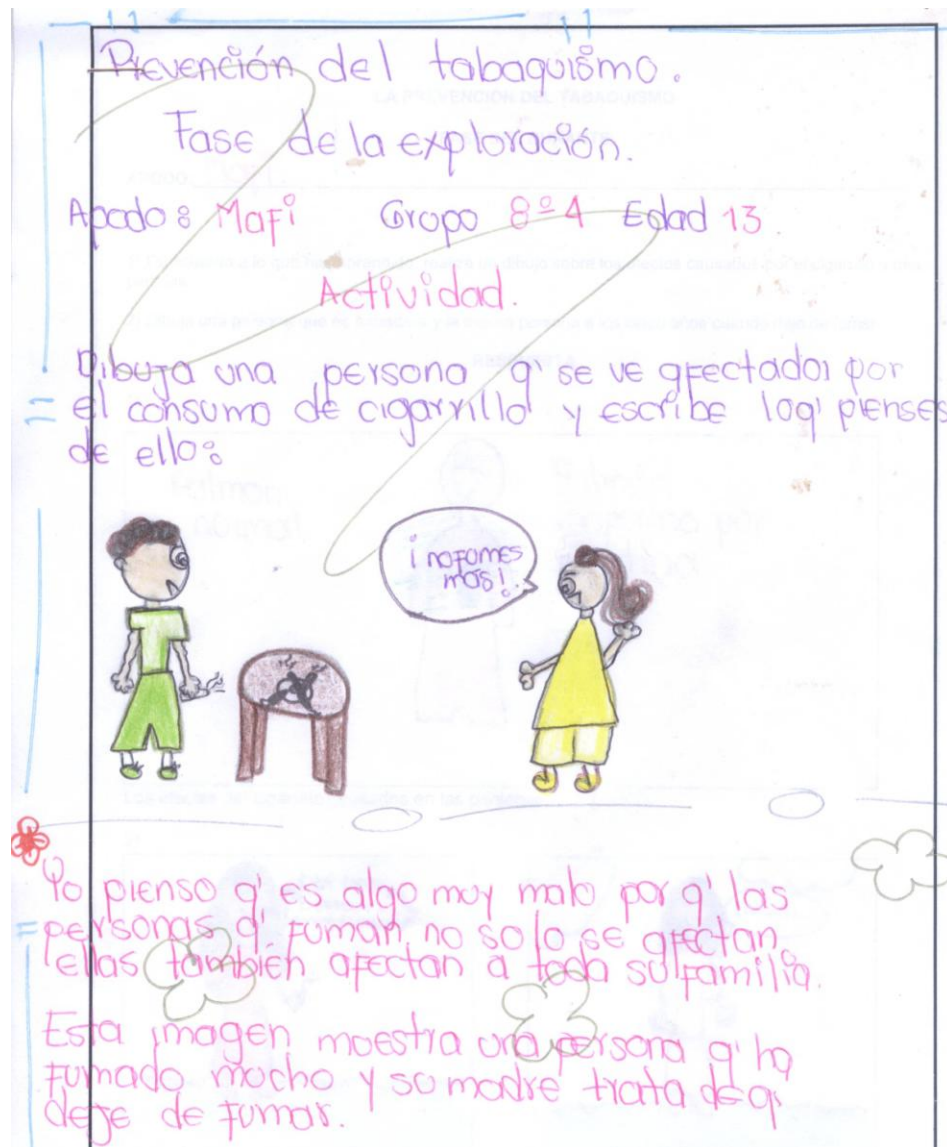 Prevención del tabaquismo.
Fase de la exploración.
Apodo: Mafi Grupo 8º4 Edad 13
Actividad.
Dibuja una persona q' se ve afectada por
el consumo de cigarrillo y escribe loq' pienses
de ello:
¡no fumes
más!
Yo pienso q' es algo muy malo por q' las
personas q' fuman no solo se afectan
ellas también afectan a toda su familia.
Esta imagen muestra una persona q' ha
fumado mucho y su madre trata de q'
deje de fumar.
LA PREVENCIÓN DEL TABAQUISMO
RESPUESTA